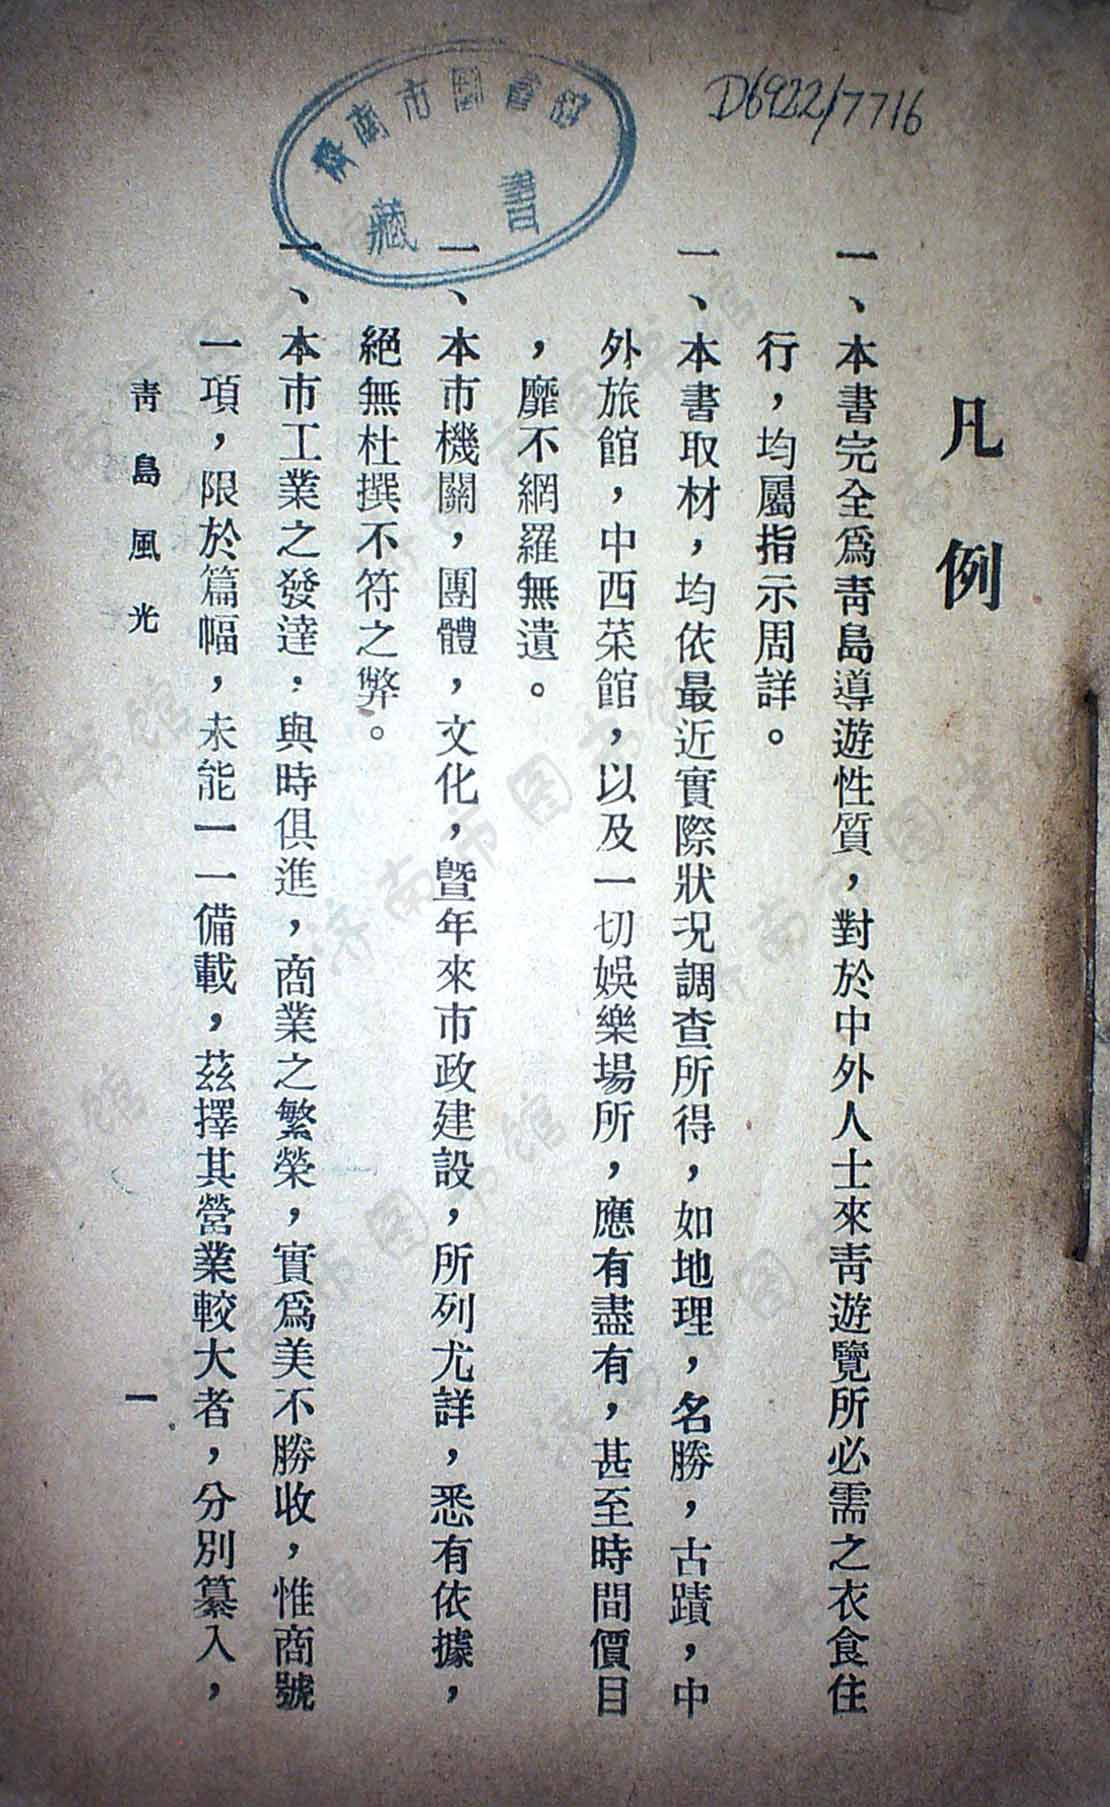 D6922/7716
濟南市圖書館
藏書
凡例
一、本書完全爲靑島導遊性質，對於中外人士來靑遊覽所必需之衣食住
行，均屬指示周詳。
一、本書取材，均依最近實際狀况調查所得，如地理，名勝，古蹟，中
外旅館，中西菜館，以及一切娛樂場所，應有盡有，甚至時間價目
，靡不網羅無遺。
一、本市機關，團體，文化，曁年來市政建設，所列尤詳，悉有依據，
絕無杜撰不符之弊。
一、本市工業之發達，與時俱進，商業之繁榮，實爲美不勝收，惟商號
一項，限於篇幅，未能一一備載，茲擇其營業較大者，分別纂入，
靑島風光
一
济南市图书馆